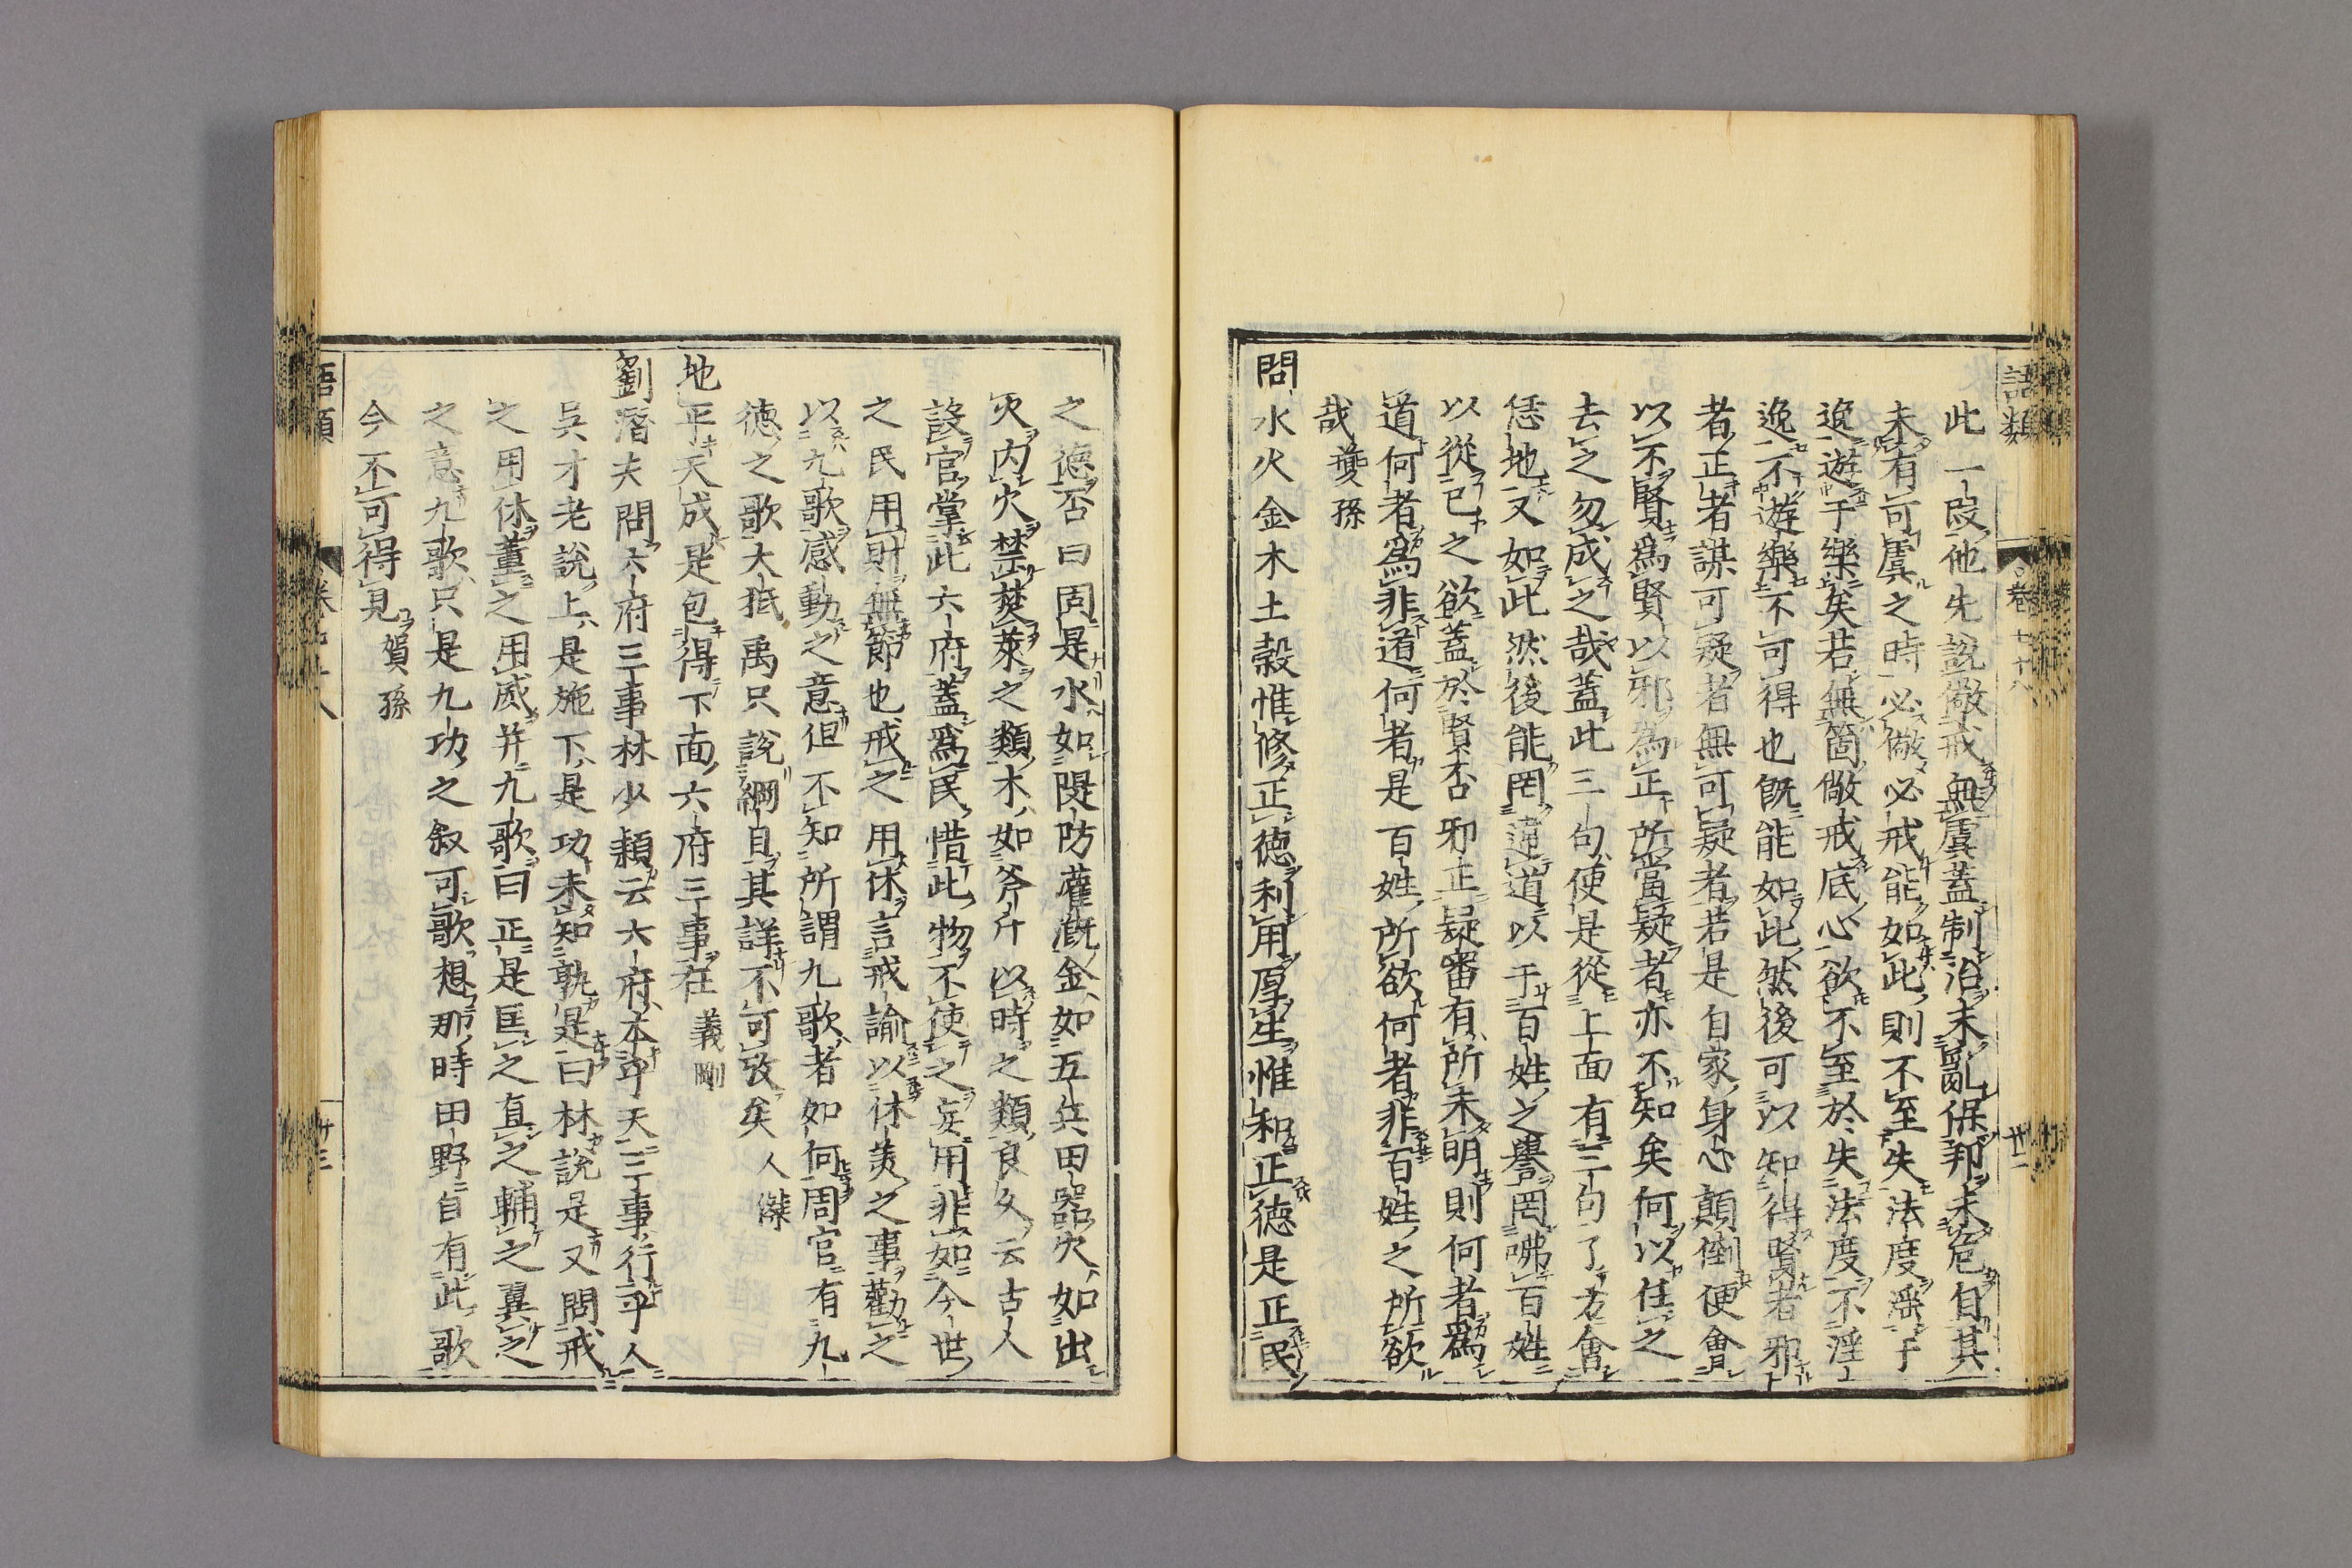 語類
卷七十八
廿二
此一段他先說儆戒無虞蓋制治未亂保邦未危自其
未有可虞之時必儆必戒能如此則不至失法度淫于
逸遊于樂矣若無箇儆戒底心欲不至於失法度不淫
逸不遊樂不可得也既能如此然後可以知得賢者邪
者正者謀可疑者無可疑者若是自家身心顛倒便會
以不賢爲賢以邪為正所當疑者亦不知矣何以任之
去之勿成之哉蓋此三句便是從上面有三句了方會
恁地又如此然後能罔違道以干百姓之譽罔咈百姓
以從已之欲蓋於賢否邪正疑審有所未明則何者爲
道何者爲非道何者是百姓所欲何者非百姓之所欲
哉夔孫
問水火金木土穀惟修正德利用厚生惟和正德是正民
之德否曰固是水如隄防灌漑金如五兵田器火如出
火內火禁焚萊之類木如斧斤以時之類良久云古人
設官掌此六府蓋爲民惜此物不使之妄用非如今世
之民用財無節也戒之用休言戒諭以休美之事勸之
以九歌感動之意但不知所謂九歌者如何周官有九
德之歌大抵禹只說綱目其詳不可攷矣人傑
地平天成是包得下面六府三事在義剛
劉潛夫問六府三事林少穎云六府本乎天三事行乎人
吳才老說上是施下是功未知孰是曰林說是又問戒
之用休董之用威并九歌曰正是匡之直之輔之翼之
之意九歌只是九功之叙可歌想那時田野自有此歌
今不可得見賀孫
語類
卷七十八
廿三